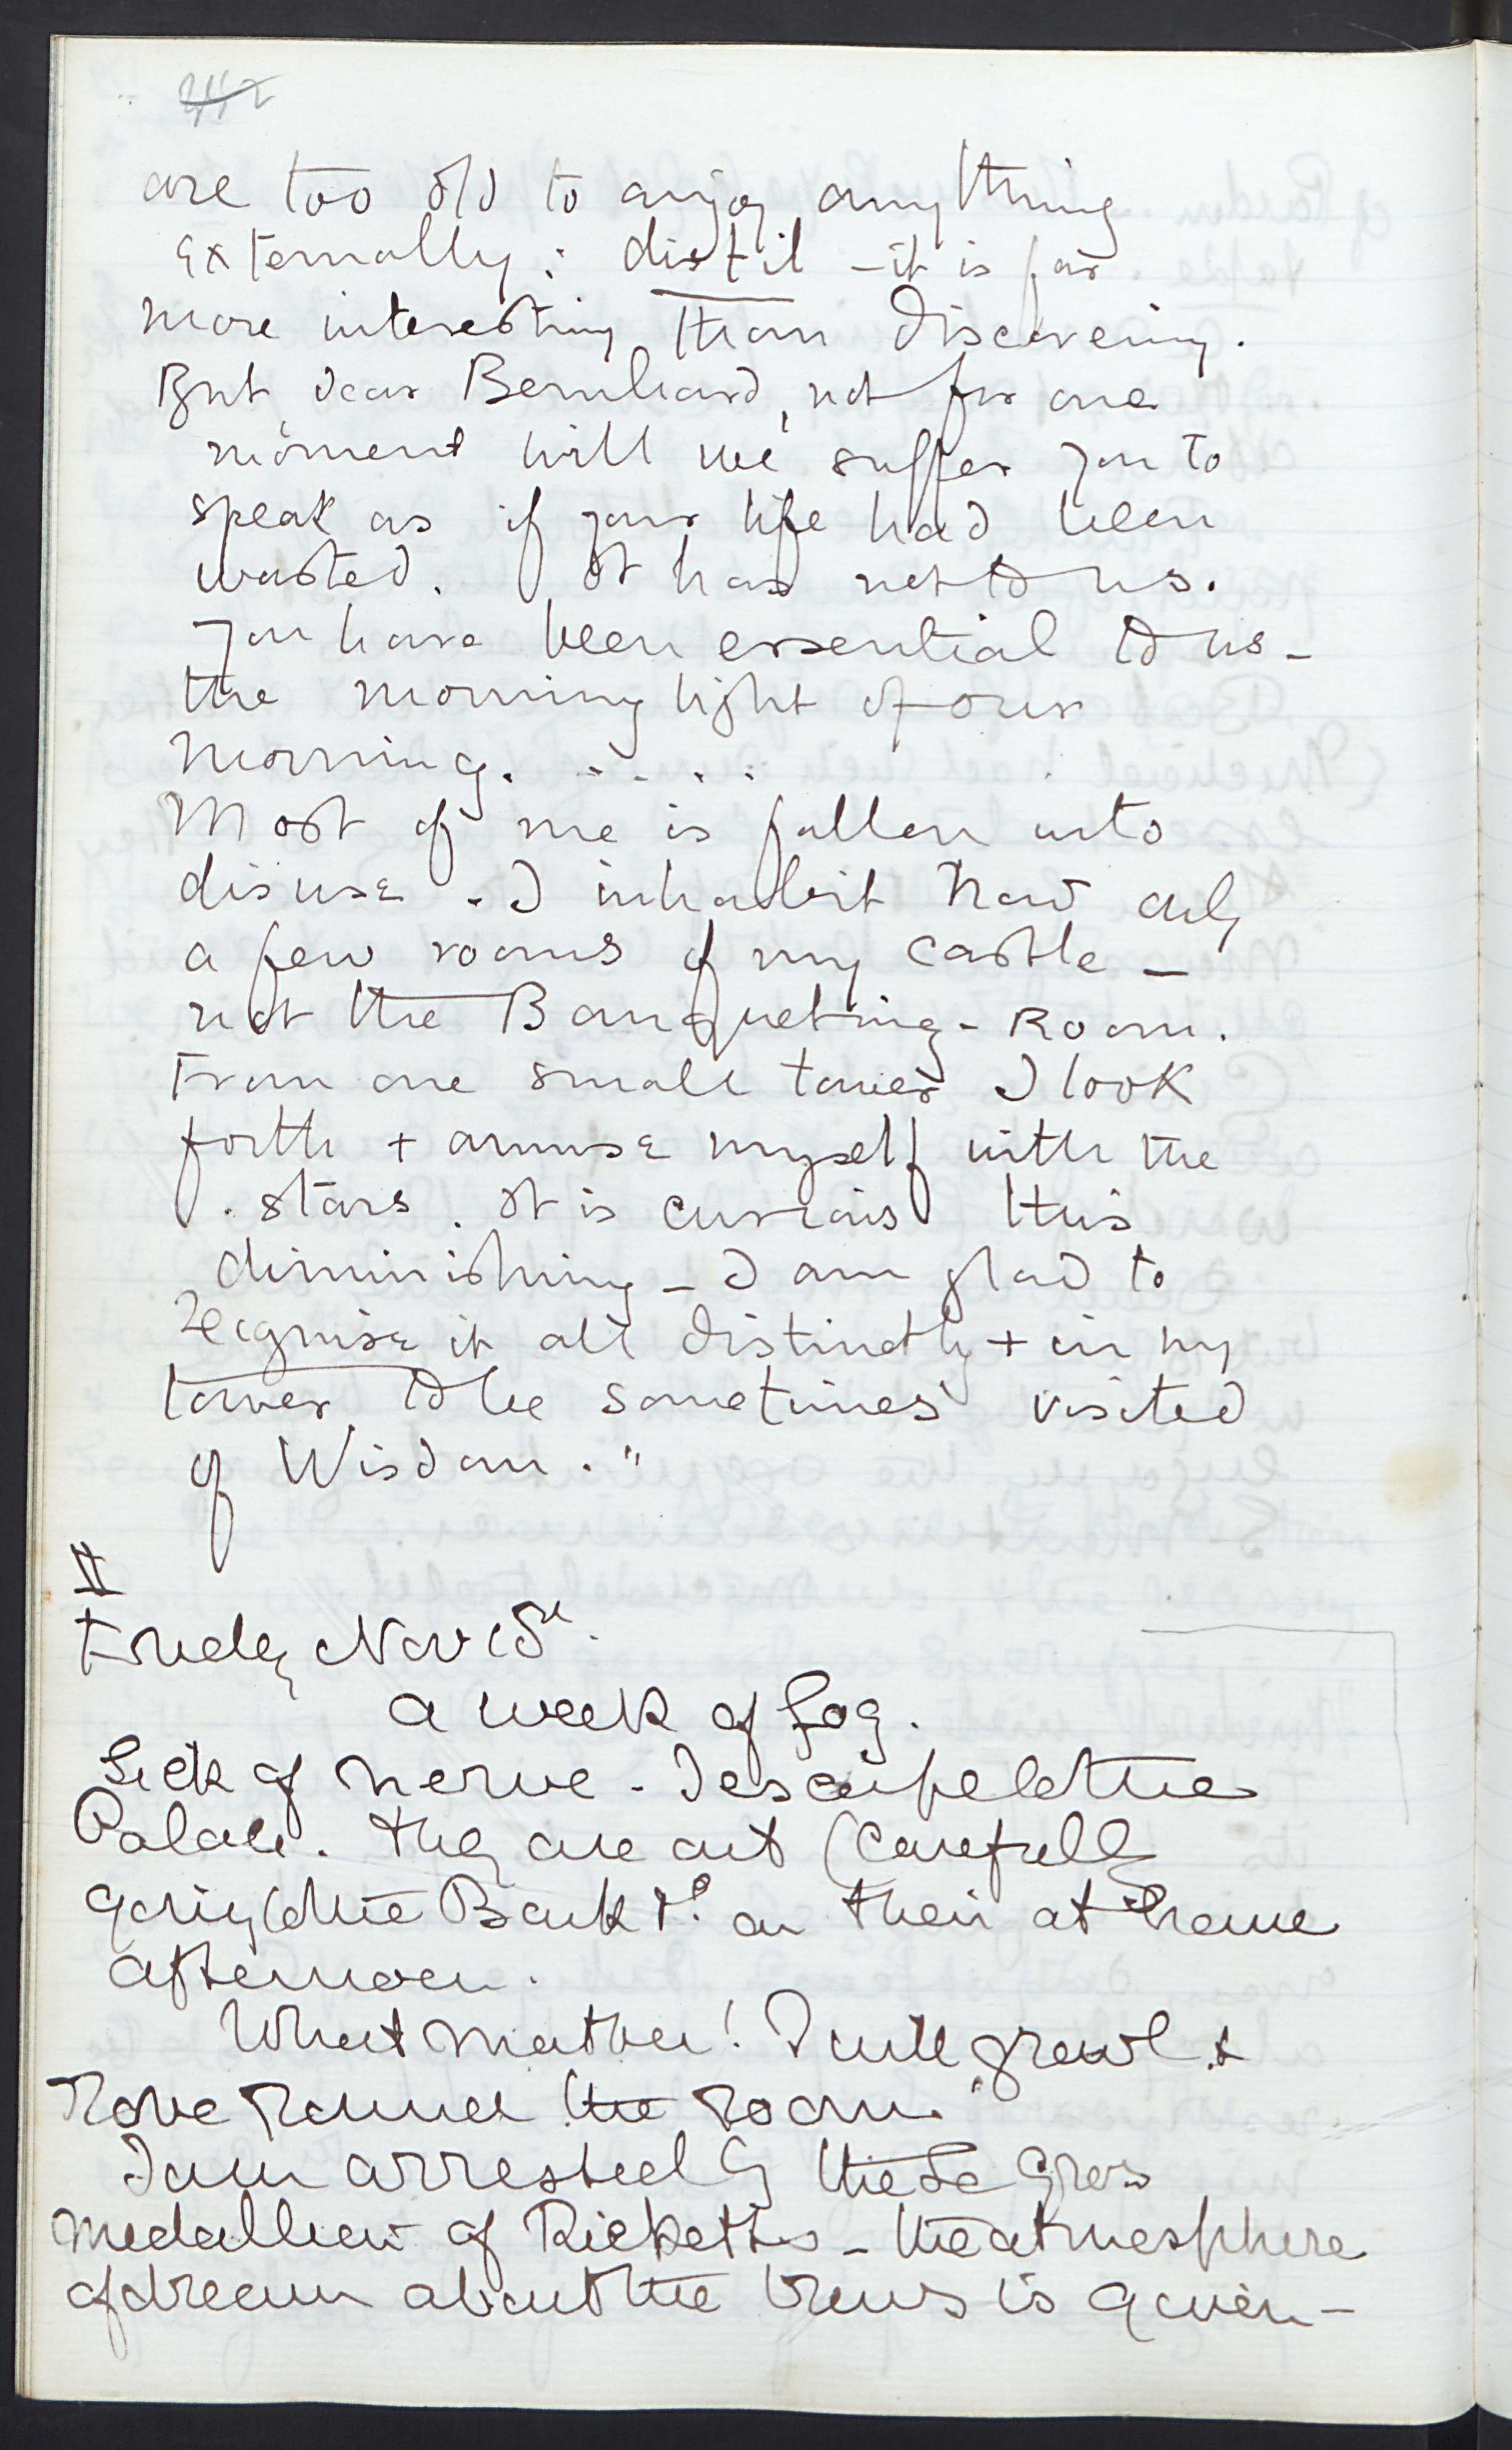 are too old to enjoy anything
externally: distil - it is far
more interesting than discovering.
But dear Bernhard, not for one
moment will we suffer you to
speak as if your life had been
wasted. It has not to us.
You have been essential to us -
the morning light of our
morning. . . . . .
Most of me is fallen into
disuse. I inhabit now only
a few rooms of my castle -
not the Banqueting-Room.
From one small tower I look
forth + amuse myself with the
stars. It is curious this
diminishing - I am glad to
recognise it all distinctly + in my
tower to be sometimes visited
of Wisdom."
II
Friday Nov 15th.
A week of fog.
Sick of nerve - I escape to the
Palace. They are out (carefully
going to the Bank &c. on their at home
afternoon.
What matter! I will growl &
rove round the room.
I am arrested by these
medallion of Ricketts - the atmosphere
of dream about the brows is given -